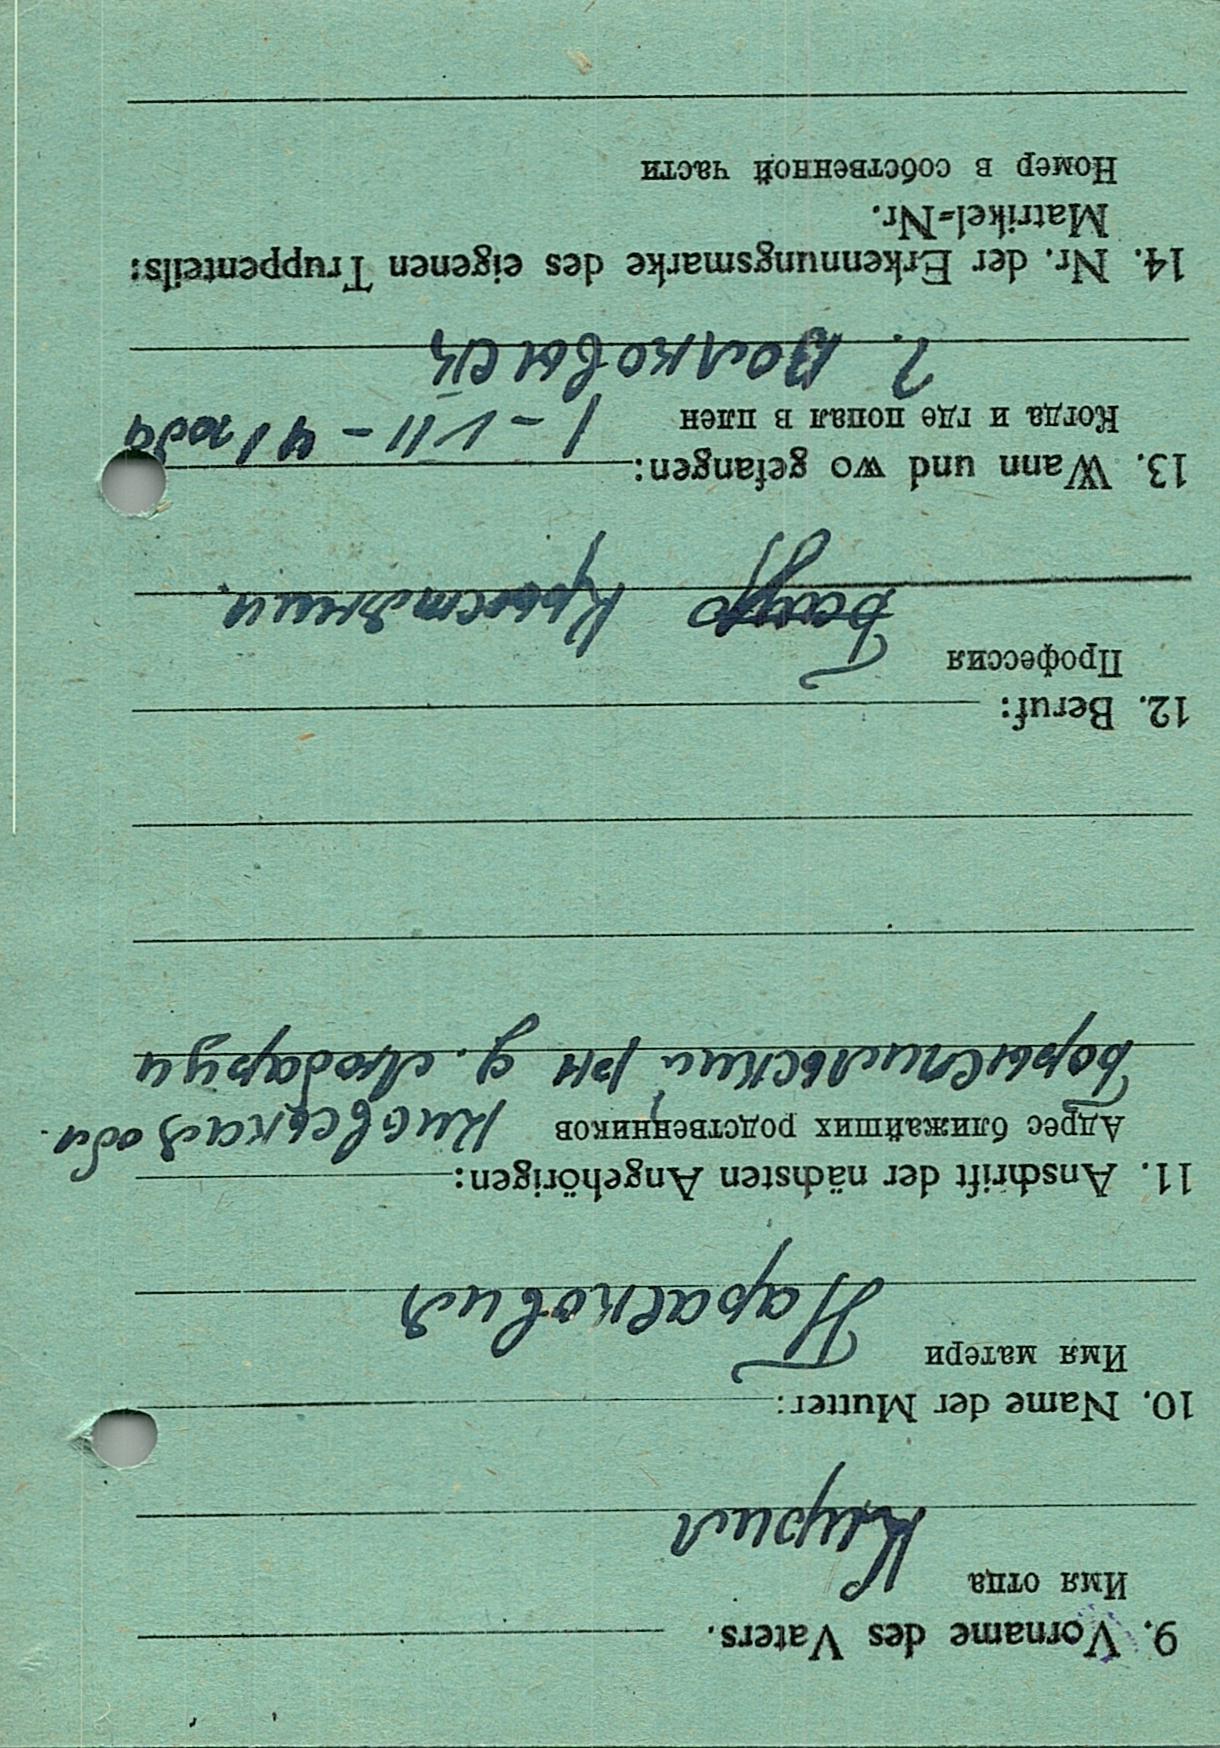 9. Vorname des Vaters.
Имя отца Кирил
10. Name der Mutter:
Имя матери Парасковия
11. Anschrift der nächsten Angehörigen:
Адрес ближайших родственников Киевськая обл.
Борыспильский рн д. Любарци
12. Beruf:
Профессия Крыстянин.
13. Wann und wo gefangen:
Когда и где попал в плен 1-VII-41 года
г. Волковыск
14. Nr. der Erkennungsmarke des eigenen Truppenteils:
Matrikel=Nr.
Номер в собственной части